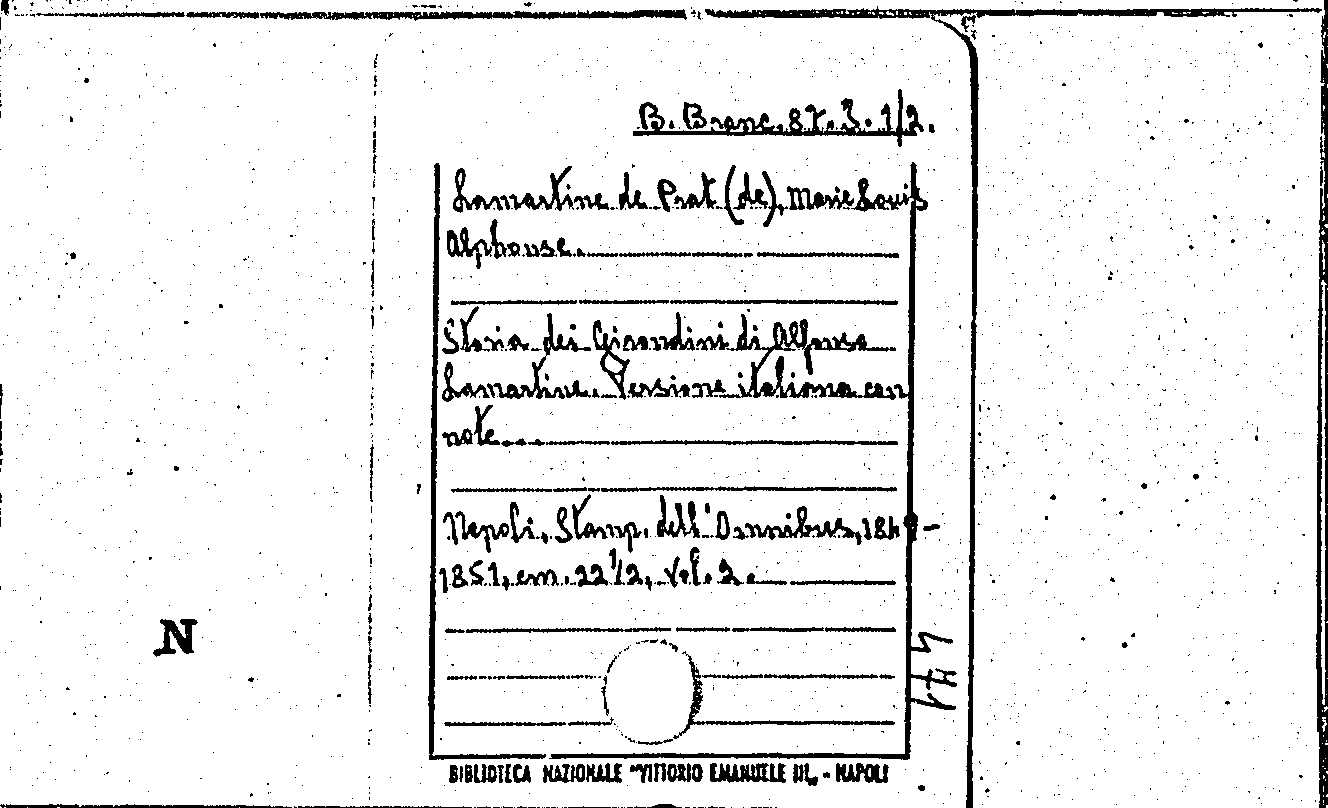 B. Branc. 87. 3. 1/2.
Lamartine de Prat (de), Marie Louis
Alphonse.
Storia dei Girondini di Alfonso
Lamartine. Versione italiana con
note...
Napoli, Stamp. dell'Omnibus,
1851, cm. 22 1/2, Vol. 2.
N
BIBLIOTECA NAZIONALE "VITTORIO EMANUELE III„ - NAPOLI